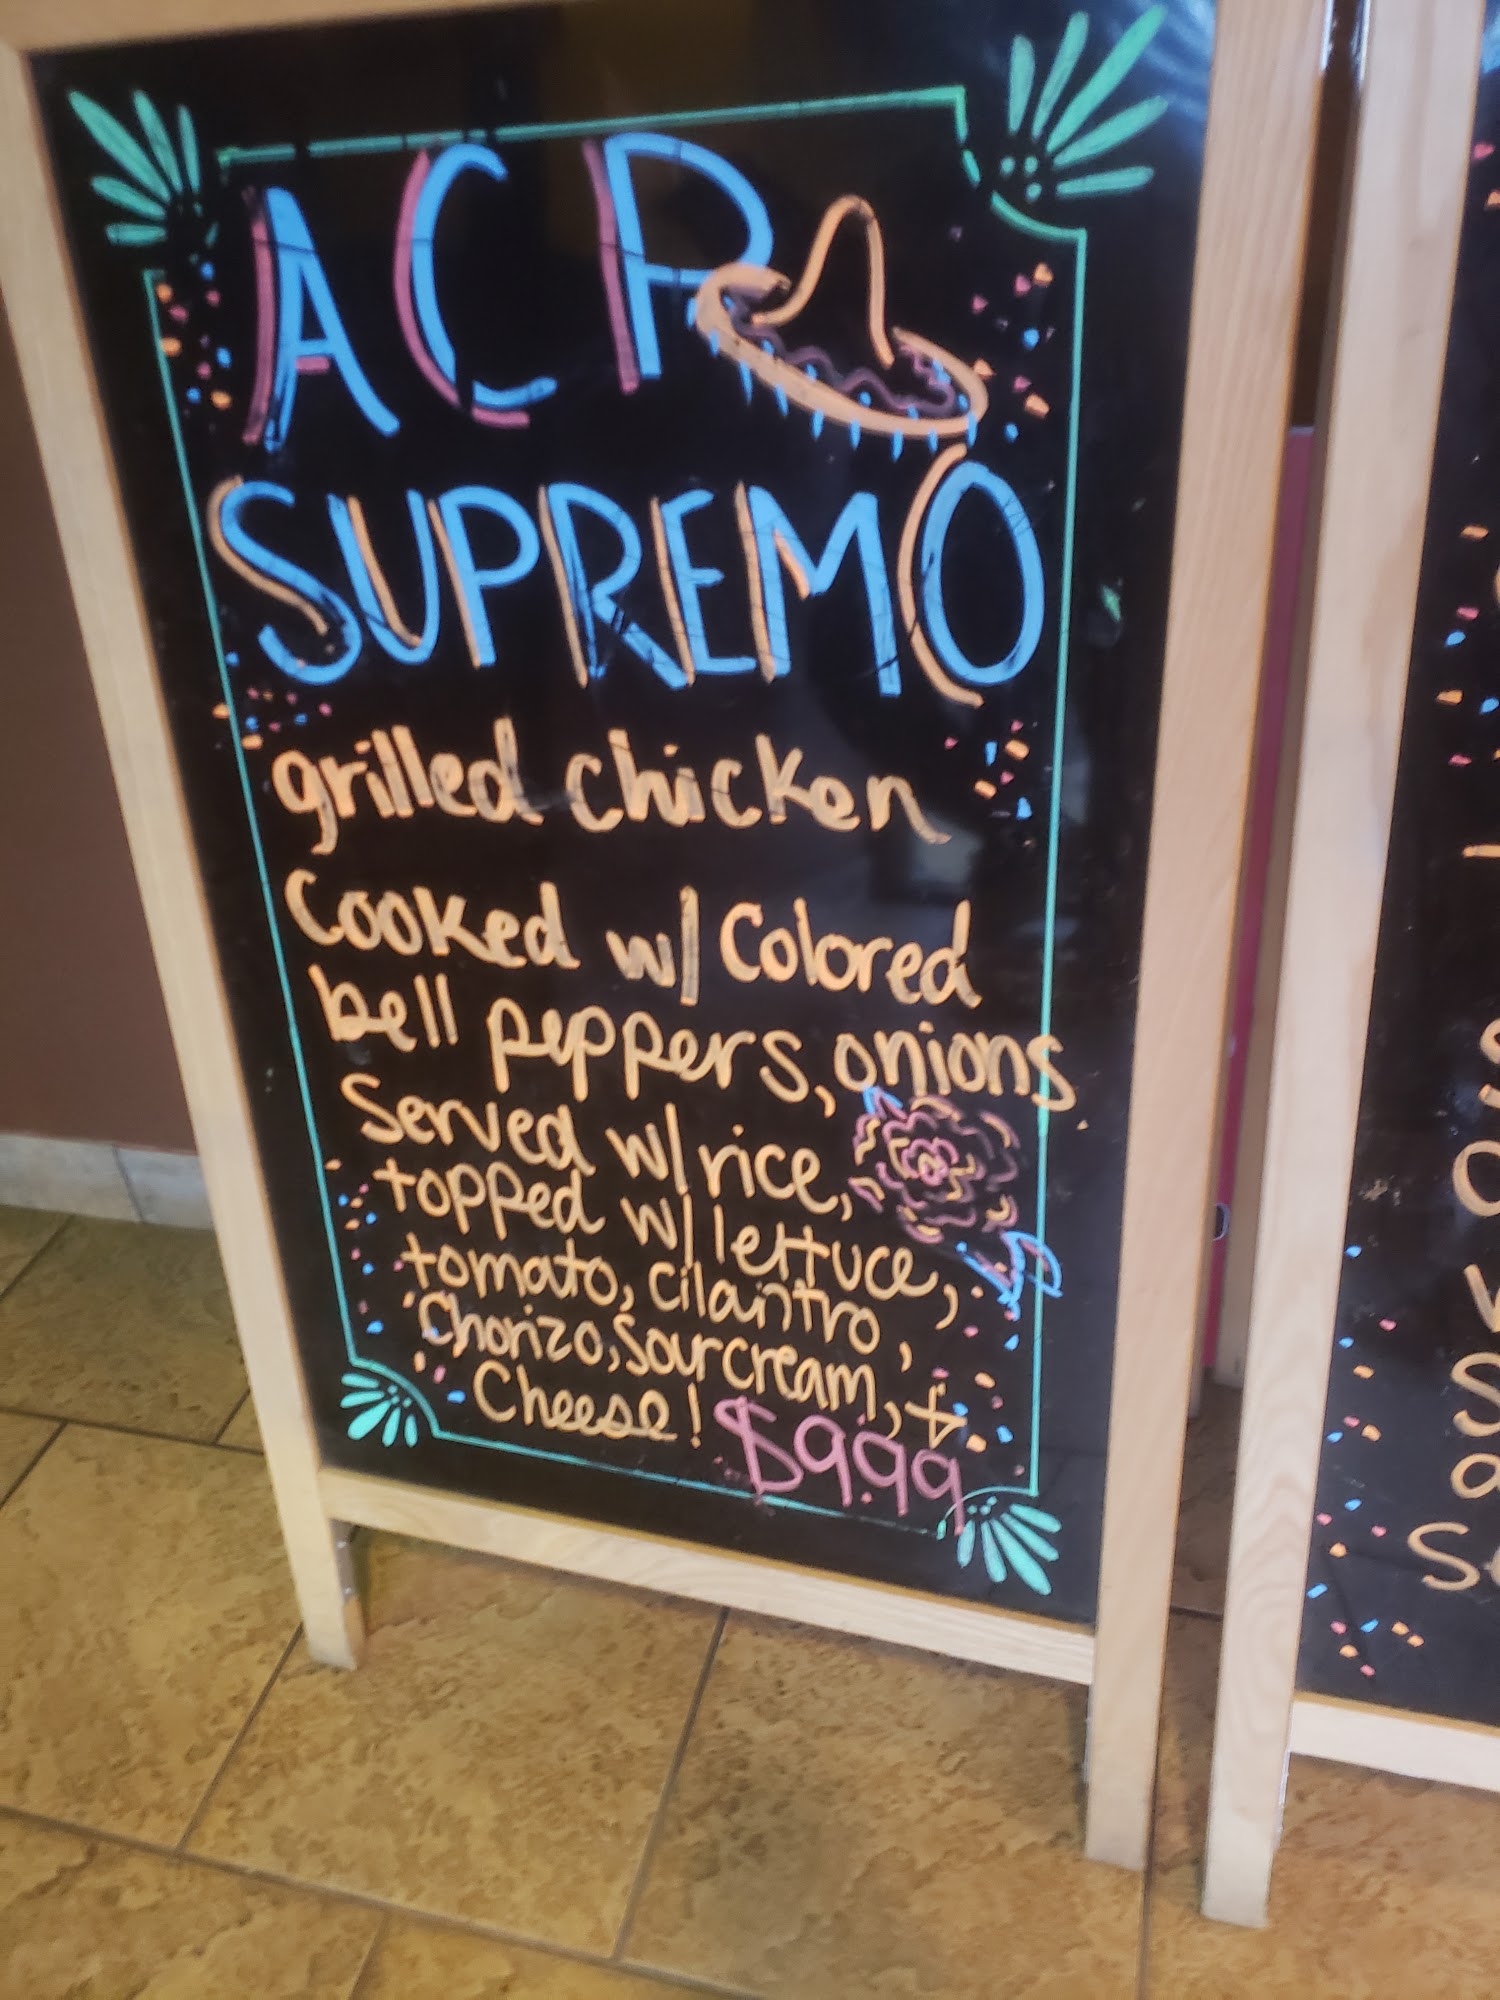 ACP
SUPREMO
grilled chicken
Cooked w/ Colored
bell peppers, onions
Served w/ rice,
topped w/ lettuce,
tomato, cilantro,
Chorizo, sour cream, &
Cheese! $9.99